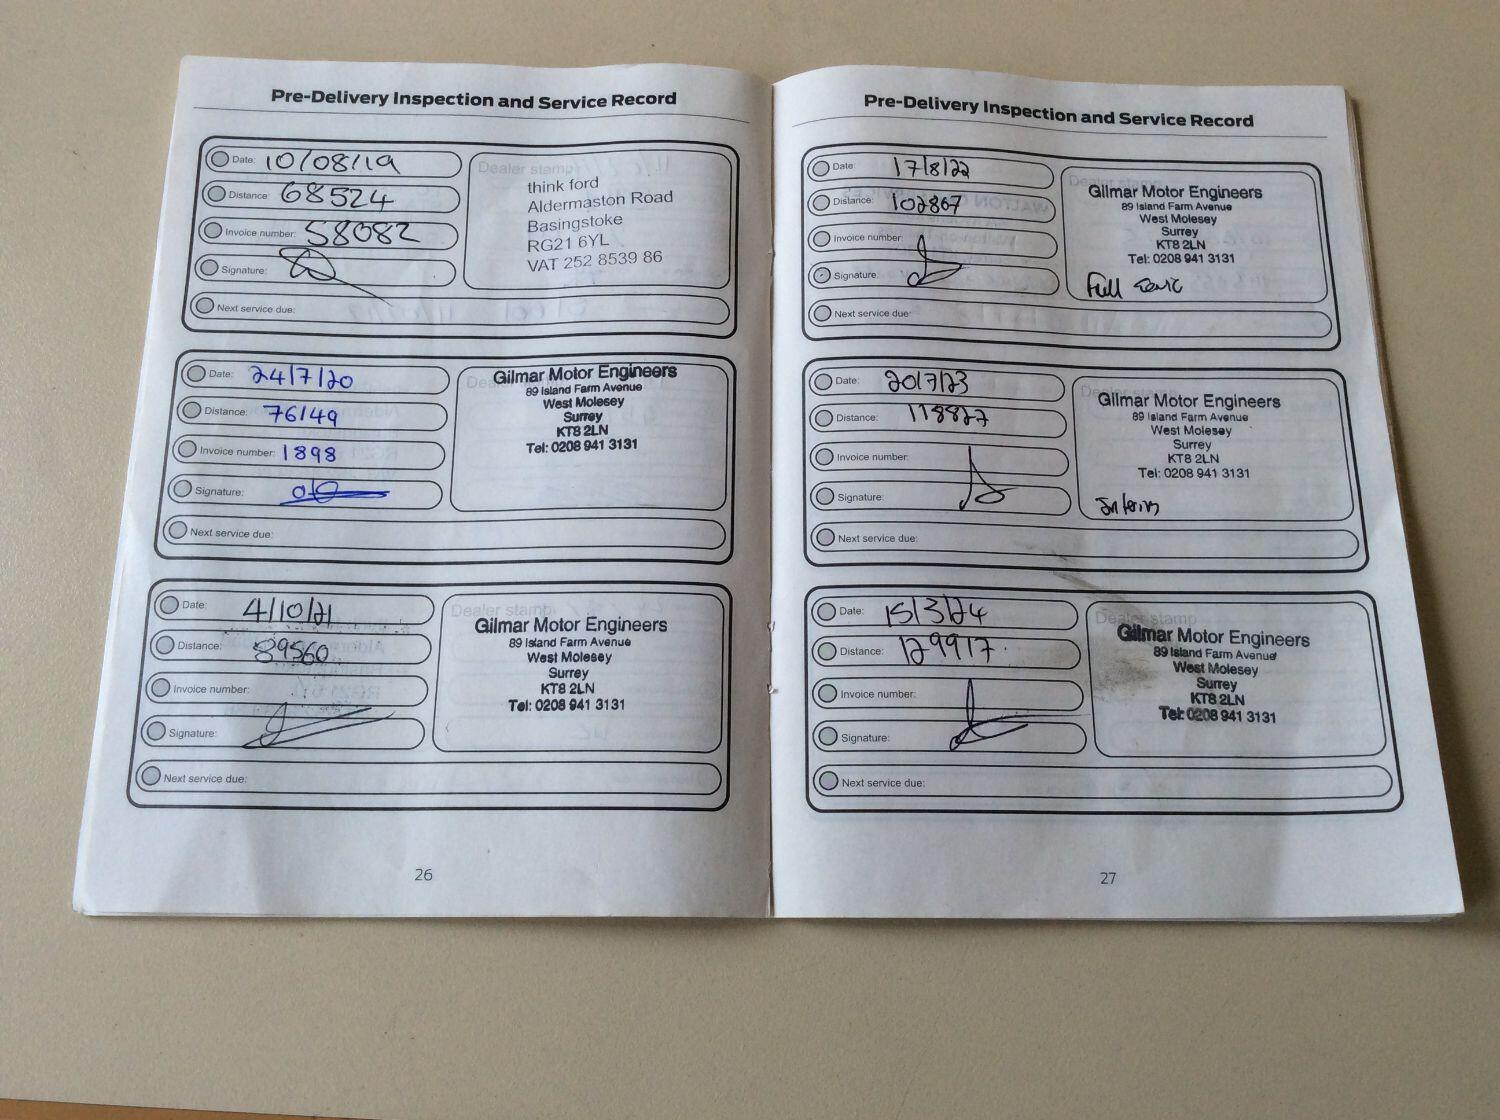 Pre-Delivery Inspection and Service Record
Date: 10/08/19
Distance: 68524
Invoice number: 58082
Signature:
Next service due:
Dealer stamp
think ford
Aldermaston Road
Basingstoke
RG21 6YL
VAT 252 8539 86
Date: 24/7/20
Distance: 76149
Invoice number: 1898
Signature:
Next service due:
Gilmar Motor Engineers
89 Island Farm Avenue
West Molesey
Surrey
KT8 2LN
Tel: 0208 941 3131
Date: 4/10/21
Distance: 89560
Invoice number:
Signature:
Next service due:
Dealer stamp
Gilmar Motor Engineers
89 Island Farm Avenue
West Molesey
Surrey
KT8 2LN
Tel: 0208 941 3131
26
Pre-Delivery Inspection and Service Record
Date: 17/8/22
Distance: 102867
Invoice number:
Signature:
Next service due:
Dealer stamp
Gilmar Motor Engineers
89 Island Farm Avenue
West Molesey
Surrey
KT8 2LN
Tel: 0208 941 3131
Full
Date: 20/7/23
Distance: 118827
Invoice number:
Signature:
Next service due:
Dealer stamp
Gilmar Motor Engineers
89 Island Farm Avenue
West Molesey
Surrey
KT8 2LN
Tel: 0208 941 3131
Interim
Date: 15/3/24
Distance: 129917
Invoice number:
Signature:
Next service due:
Dealer stamp
Gilmar Motor Engineers
89 Island Farm Avenue
West Molesey
Surrey
KT8 2LN
Tel: 0208 941 3131
27